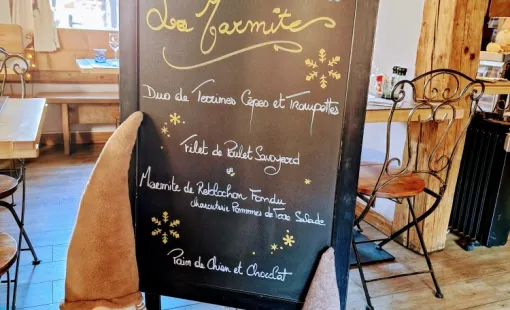 La Marmite
Duo de Terrines Cèpes et Trompettes
Filet de Poulet Savoyard
ou
Marmite de Reblochon Fondu
charcuterie Pommes de Terre Salade
Pain de Chien et Chocolat